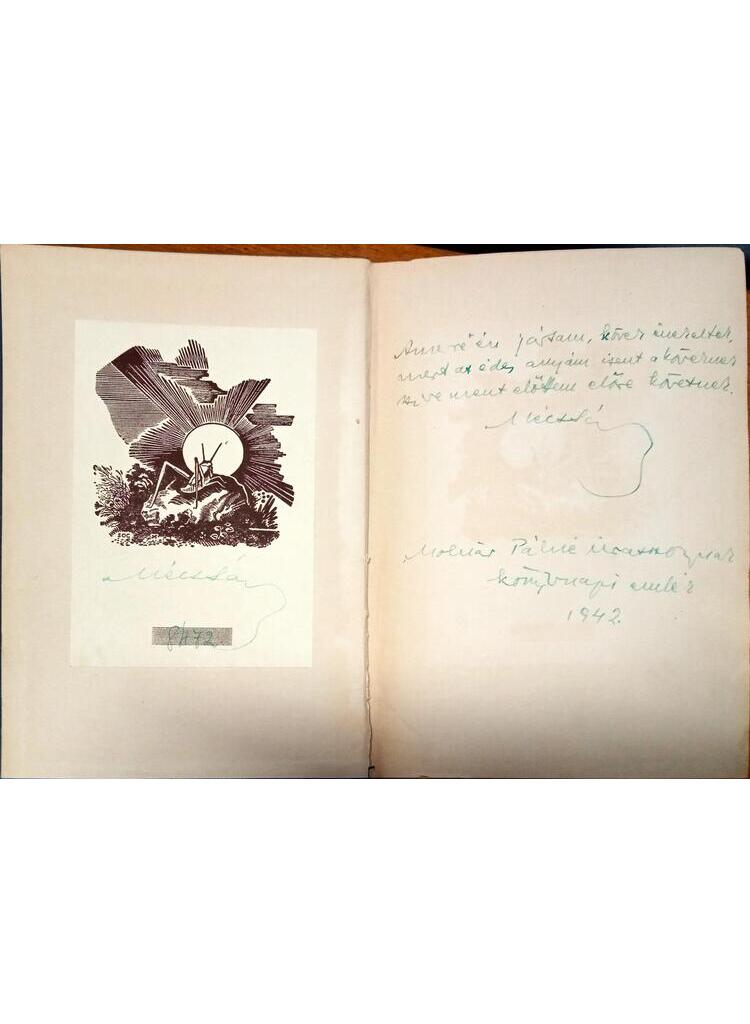 Mécs Lá
8472
Amerre én jártam, kövek énekeltek,
mert az édes anyám izent a köveknek
szíve ment előttem előre követnek.
Mécs Lá
Molnár Pálné úrasszonynak
könyvnapi emlék
1942.